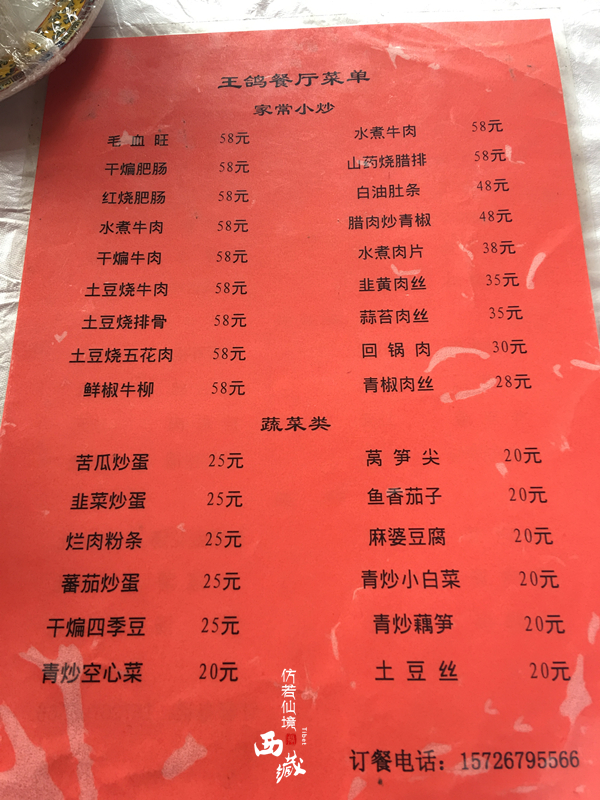 王鸽餐厅菜单
家常小炒
毛血旺 58元 水煮牛肉 58元
干煸肥肠 58元 山药烧腊排 58元
红烧肥肠 58元 白油肚条 48元
水煮牛肉 58元 腊肉炒青椒 48元
干煸牛肉 58元 水煮肉片 38元
土豆烧牛肉 58元 韭黄肉丝 35元
土豆烧排骨 58元 蒜苔肉丝 35元
土豆烧五花肉 58元 回锅肉 30元
鲜椒牛柳 58元 青椒肉丝 28元
蔬菜类
苦瓜炒蛋 25元 莴笋尖 20元
韭菜炒蛋 25元 鱼香茄子 20元
烂肉粉条 25元 麻婆豆腐 20元
蕃茄炒蛋 25元 青炒小白菜 20元
干煸四季豆 25元 青炒藕笋 20元
青炒空心菜 20元 土豆丝 20元
仿若仙境
西藏
Tibet
订餐电话：15726795566